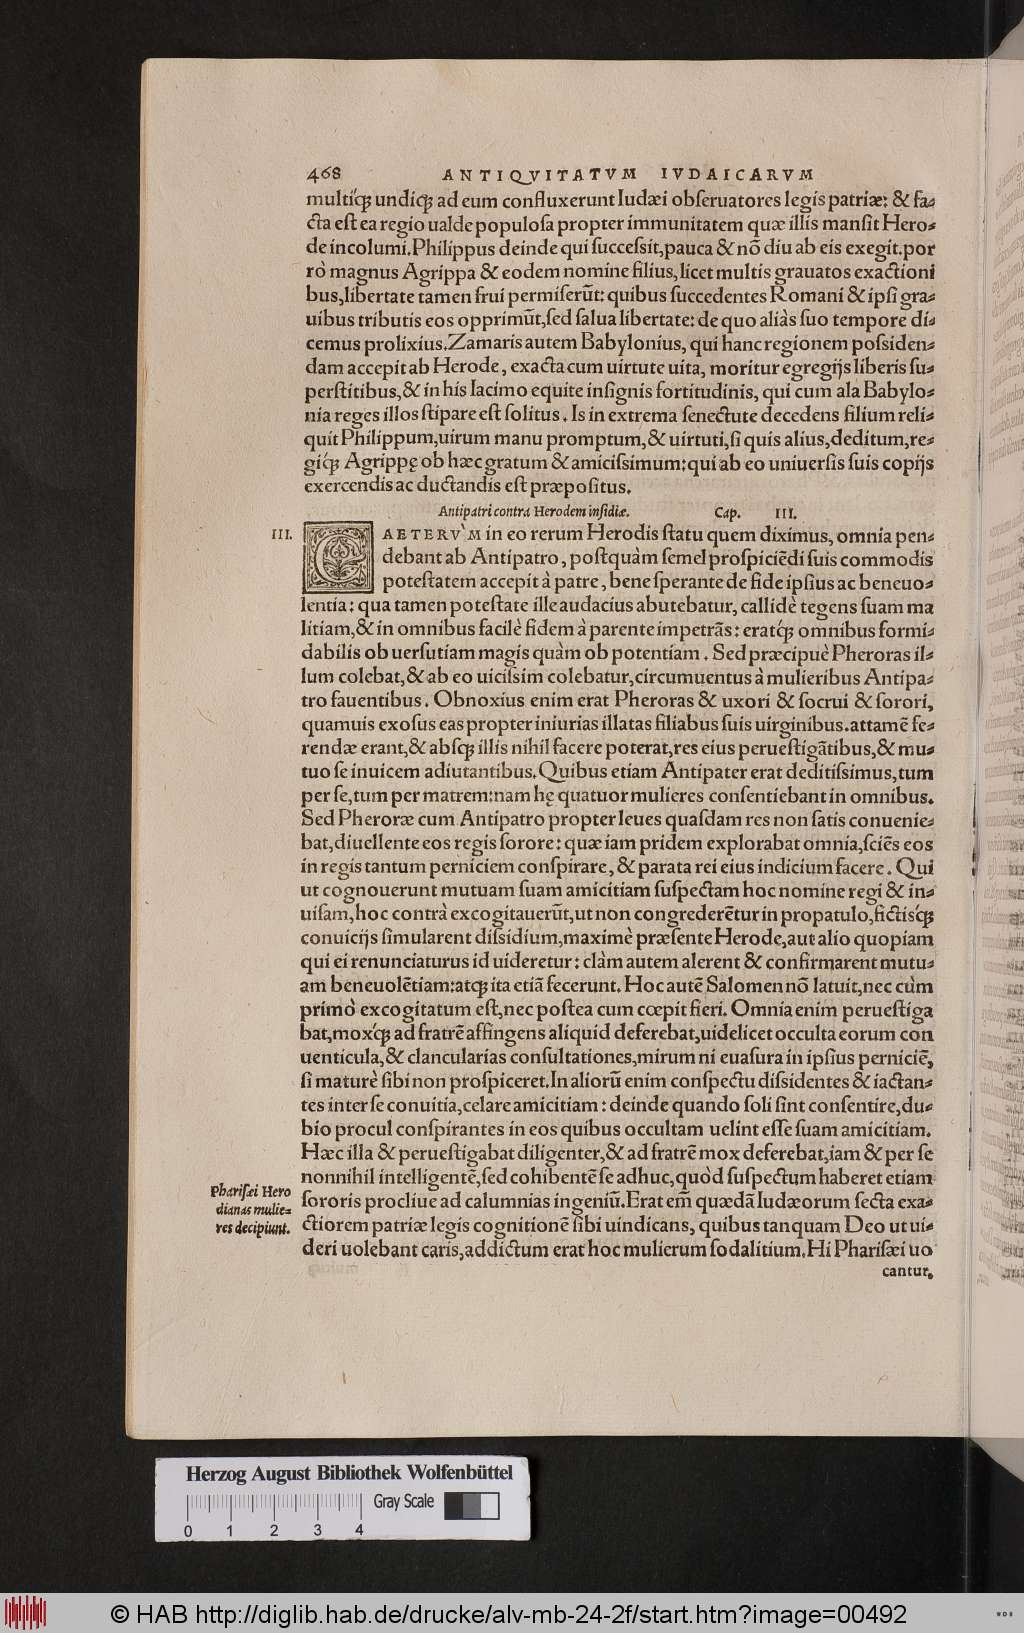 468 ANTIQVITATVM IVDAICARVM
multiq́ꝫ undiqꝫ ad eum confluxerunt Iudæi obſeruatores legis patriæ: & fa-
cta eſt ea regio ualde populoſa propter immunitatem quæ illis manſit Hero-
de incolumi. Philippus deinde qui ſucceſsit, pauca & nõ diu ab eis exegit. por
rò magnus Agrippa & eodem nomine filius, licet multis grauatos exactioni
bus, libertate tamen frui permiſerũt: quibus ſuccedentes Romani & ipſi gra-
uibus tributis eos opprimũt, ſed ſalua libertate: de quo aliàs ſuo tempore di-
cemus prolixius. Zamaris autem Babylonius, qui hanc regionem poſsiden-
dam accepit ab Herode, exacta cum uirtute uita, moritur egregijs liberis ſu-
perſtitibus, & in his Iacimo equite inſignis fortitudinis, qui cum ala Babylo-
nia reges illos ſtipare eſt ſolitus. Is in extrema ſenectute decedens filium reli-
quit Philippum, uirum manu promptum, & uirtuti, ſi quis alius, deditum, re-
giq́ꝫ Agrippę ob hæc gratum & amiciſsimum: qui ab eo uniuerſis ſuis copijs
exercendis ac ductandis eſt præpoſitus.
Antipatri contra Herodem inſidiæ. Cap. III.
III. CAETERV̀M in eo rerum Herodis ſtatu quem diximus, omnia pen-
debant ab Antipatro, poſtquàm ſemel proſpiciẽdi ſuis commodis
poteſtatem accepit à patre, bene ſperante de fide ipſius ac beneuo-
lentia: qua tamen poteſtate ille audacius abutebatur, callidè tegens ſuam ma
litiam, & in omnibus facilè fidem à parente impetrãs: eratq́ꝫ omnibus formi-
dabilis ob uerſutiam magis quàm ob potentiam. Sed præcipuè Pheroras il-
lum colebat, & ab eo uiciſsim colebatur, circumuentus à mulieribus Antipa-
tro fauentibus. Obnoxius enim erat Pheroras & uxori & ſocrui & ſorori,
quamuis exoſus eas propter iniurias illatas filiabus ſuis uirginibus. attamẽ fe-
rendæ erant, & abſqꝫ illis nihil facere poterat, res eius perueſtigãtibus, & mu-
tuo ſe inuicem adiutantibus. Quibus etiam Antipater erat deditiſsimus, tum
per ſe, tum per matrem: nam hę quatuor mulieres conſentiebant in omnibus.
Sed Pheroræ cum Antipatro propter leues quaſdam res non ſatis conuenie-
bat, diuellente eos regis ſorore: quæ iam pridem explorabat omnia, ſciẽs eos
in regis tantum perniciem conſpirare, & parata rei eius indicium facere. Qui
ut cognouerunt mutuam ſuam amicitiam ſuſpectam hoc nomine regi & in-
uiſam, hoc contrà excogitauerũt, ut non congrederẽtur in propatulo, fictisq́ꝫ
conuicijs ſimularent diſsidium, maximè præſente Herode, aut alio quopiam
qui ei renunciaturus id uideretur: clàm autem alerent & confirmarent mutu-
am beneuolẽtiam: atqꝫ ita etiã fecerunt. Hoc autẽ Salomen nõ latuit, nec cùm
primò excogitatum eſt, nec poſtea cum cœpit fieri. Omnia enim perueſtiga
bat, moxq́ꝫ ad fratrẽ affingens aliquid deferebat, uidelicet occulta eorum con
uenticula, & clancularias conſultationes, mirum ni euaſura in ipſius perniciẽ,
ſi maturè ſibi non proſpiceret. In aliorũ enim conſpectu diſsidentes & iactan-
tes inter ſe conuitia, celare amicitiam: deinde quando ſoli ſint conſentire, du-
bio procul conſpirantes in eos quibus occultam uelint eſſe ſuam amicitiam.
Hæc illa & perueſtigabat diligenter, & ad fratrẽ mox deferebat, iam & per ſe
nonnihil intelligentẽ, ſed cohibentẽ ſe adhuc, quòd ſuſpectum haberet etiam
ſororis procliue ad calumnias ingeniũ. Erat em̃ quædã Iudæorum ſecta exa-
ctiorem patriæ legis cognitionẽ ſibi uindicans, quibus tanquam Deo ut ui-
deri uolebant caris, addictum erat hoc mulierum ſodalitium. Hi Phariſæi uo
cantur,
Phariſæi Hero
dianas mulie-
res decipiunt.
Herzog August Bibliothek Wolfenbüttel
Gray Scale
0 1 2 3 4
© HAB http://diglib.hab.de/drucke/alv-mb-24-2f/start.htm?image=00492